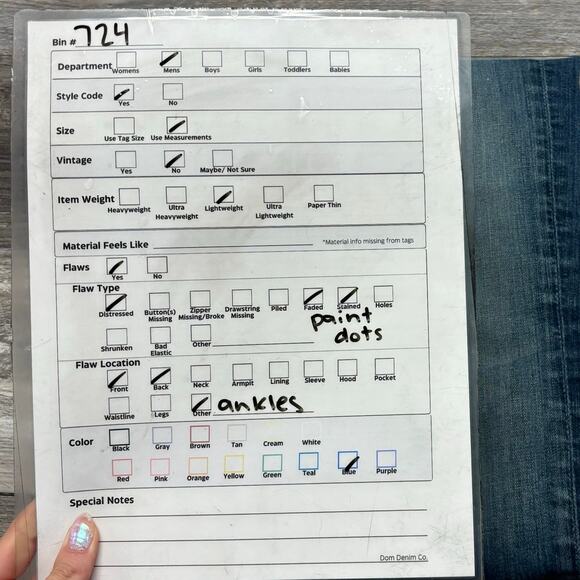 Bin # 724
Department Womens Mens Boys Girls Toddlers Babies
Style Code Yes No
Size Use Tag Size Use Measurements
Vintage Yes No Maybe/ Not Sure
Item Weight Heavyweight Ultra Heavyweight Lightweight Ultra Lightweight Paper Thin
Material Feels Like *Material info missing from tags
Flaws Yes No
Flaw Type
Distressed Button(s) Missing Zipper Missing/Broke Drawstring Missing Piled Faded Stained Holes
paint dots
Shrunken Bad Elastic Other
Flaw Location
Front Back Neck Armpit Lining Sleeve Hood Pocket
Waistline Legs Other ankles
Color Black Gray Brown Tan Cream White
Red Pink Orange Yellow Green Teal Blue Purple
Special Notes
Dom Denim Co.